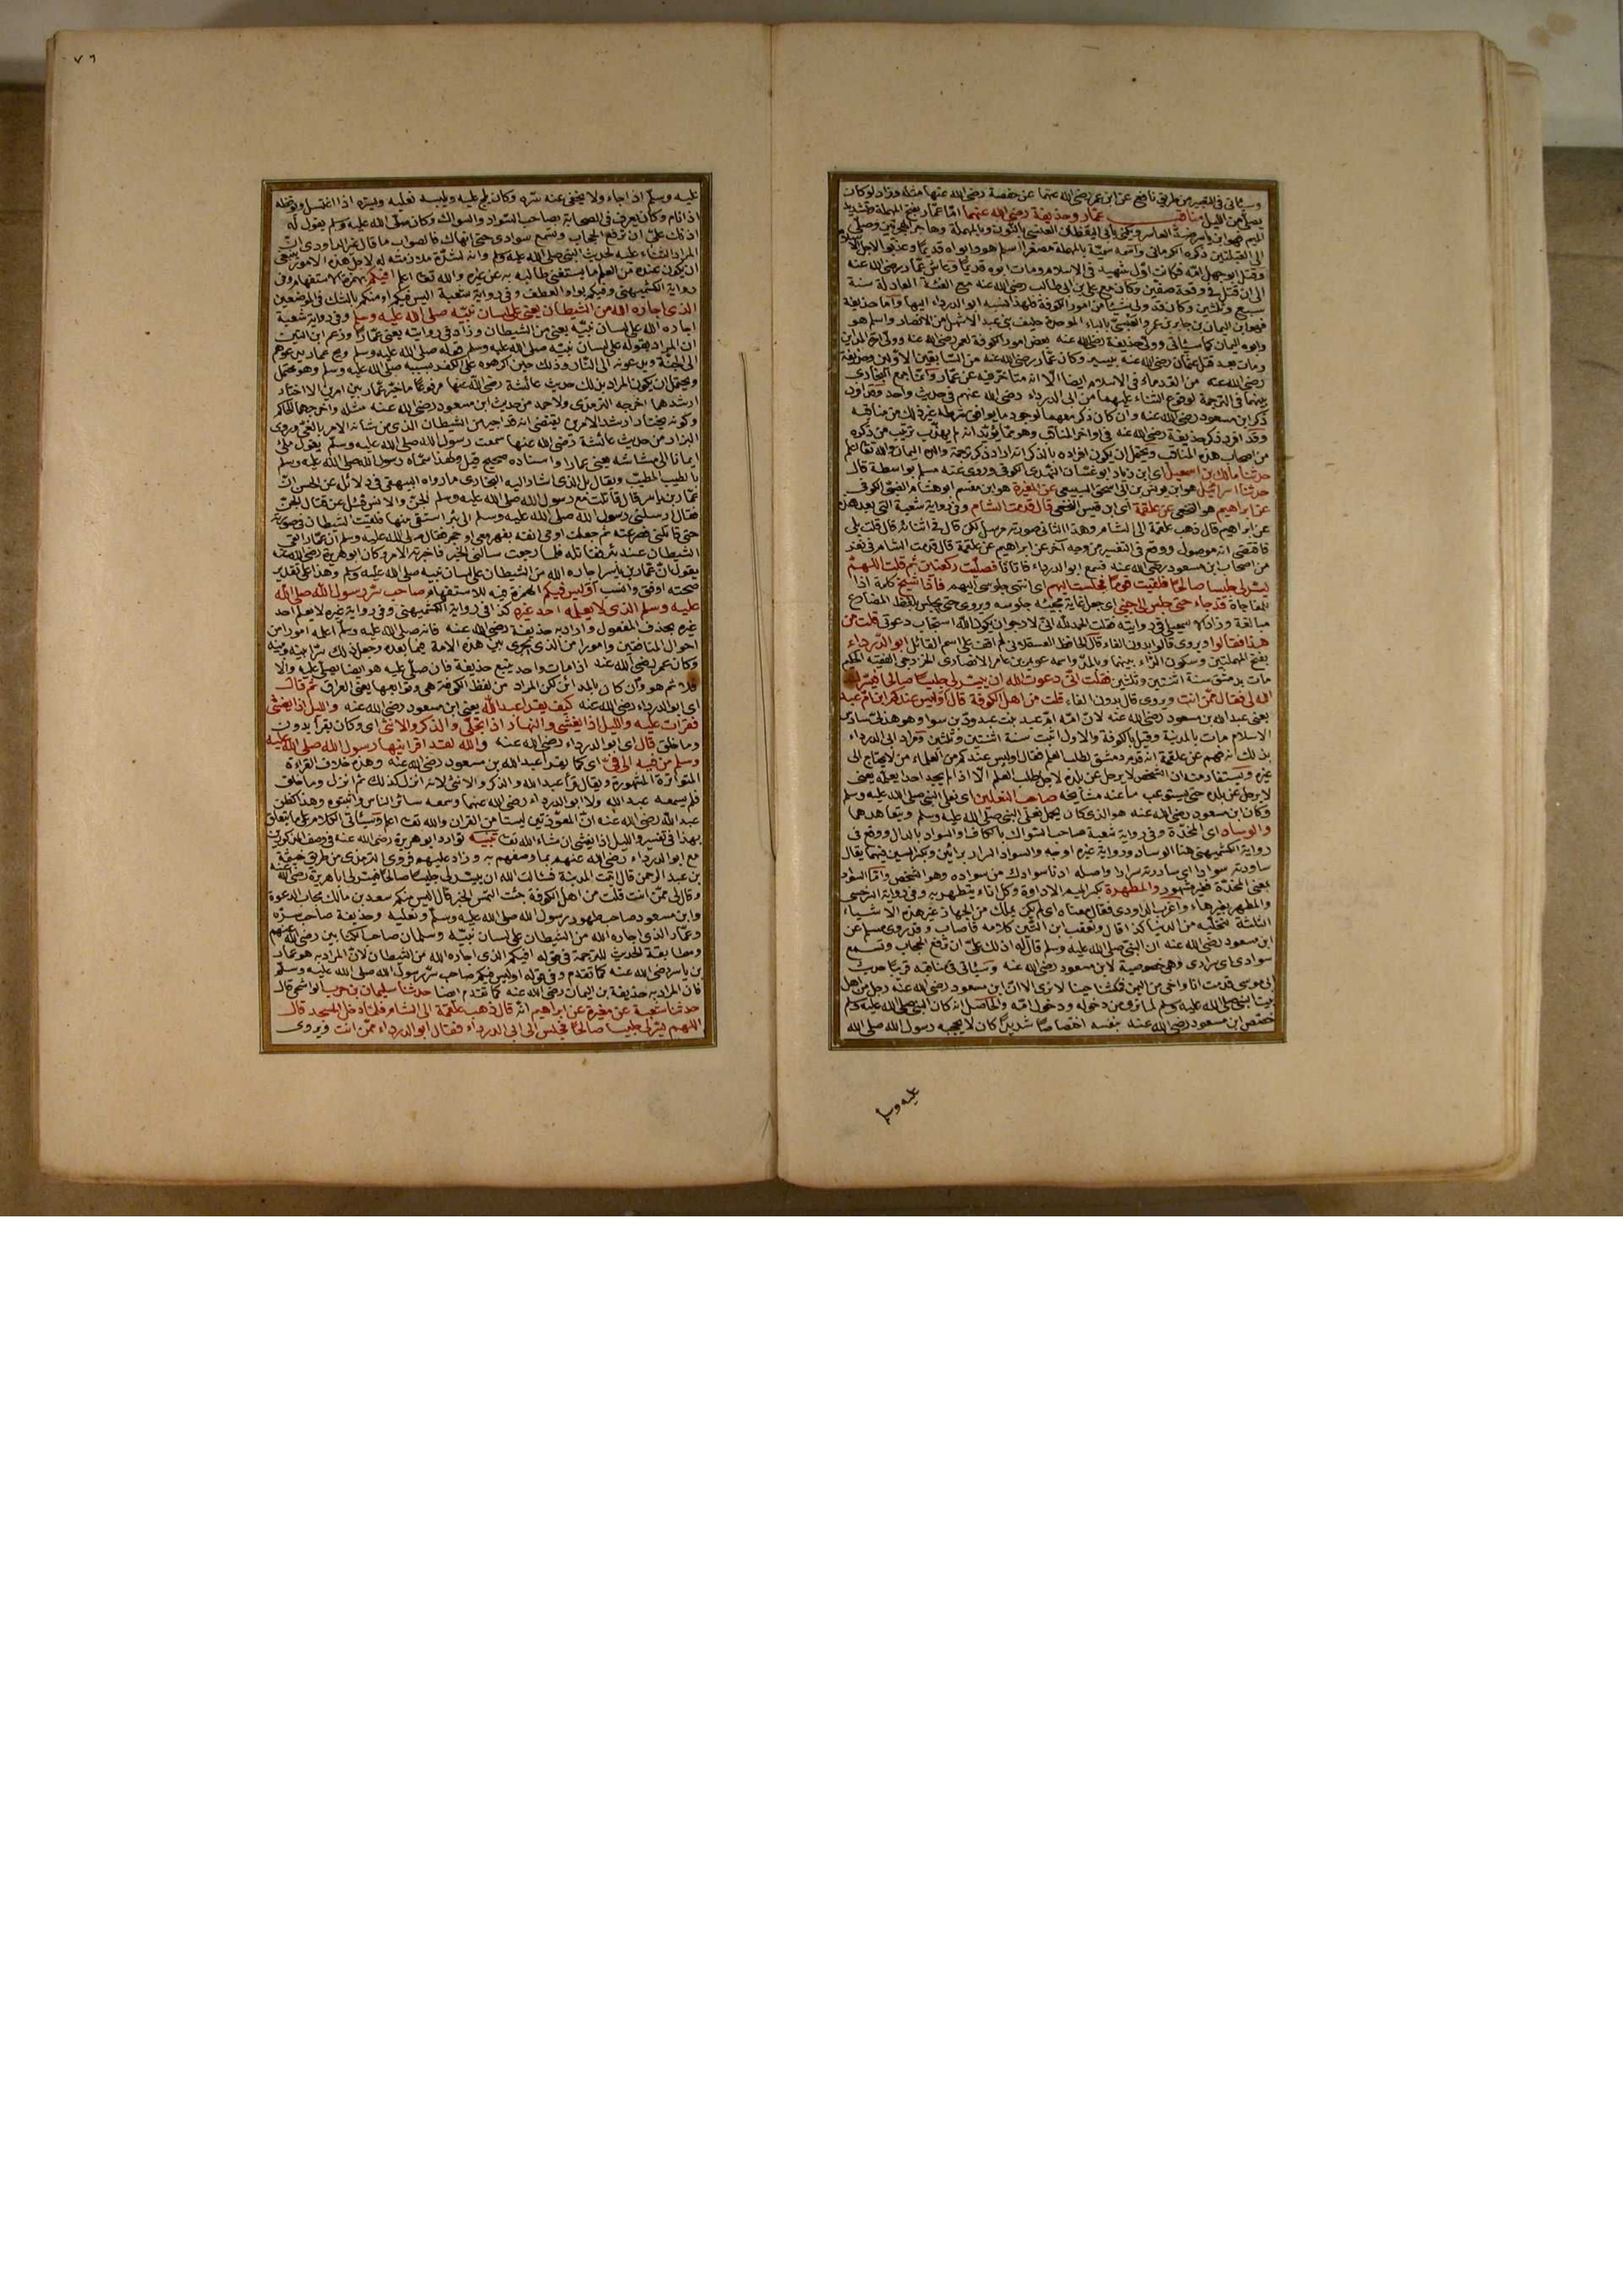 وسيأتي في التعبير من طريق نافع عن ابن عمر رضي الله عنهما عن حفصة رضي الله عنها مثله وزاد لو كان
يصلي من الليل مناقب عمار وحذيفة رضي الله عنهما اما عمار بفتح المهملة وتشديد
الميم فهو ابن ياسر يكنى بابي اليقظان العنسي بالنون وبالمهملة وهاجر الهجرتين وصلى
الى القبلتين ذكره الكرماني وامه سمية بالمهملة مصغرا اسلم هو وابواه قديما وعذبوا لاجل الاسلام
وقتل ابو جهل امه فكانت اول شهيد في الاسلام ومات ابوه قديما وعاش عمار رضي الله عنه
الى ان قتل في وقعة صفين وكان مع علي بن ابي طالب رضي الله عنه مع الفئة العادلة سنة
سبع وثلثين وكان قد ولي شيئا من امور الكوفة فلهذا نسبه ابو الدرداء اليها واما حذيفة
فهو ابن اليمان بن جابر بن عمرو العبسي بالباء الموحدة حليف بني عبد الاشهل من الانصار واسلم هو
وابوه اليمان كما سيأتي وولي حذيفة رضي الله عنه بعض امور الكوفة لعمر رضي الله عنه وولي امرة المداين
ومات بعد قتل عثمان رضي الله عنه بيسير وكان عمار رضي الله عنه من السابقين الاولين وحذيفة
رضي الله عنه من القدماء في الاسلام ايضا الا انه متأخر فيه عن عمار وانما جمع البخاري
بينهما في الترجمة لوقوع الثناء عليهما من ابي الدرداء رضي الله عنهم في حديث واحد وقد افرد
ذكر ابن مسعود رضي الله عنه وان كان ذكر معهما لوجود ما يوافق شرطه غير ذلك من مناقبه
وقد افرد ذكر حذيفة رضي الله عنه في اواخر المناقب وهو مما يؤيد انه لم يهذب ترتيب من ذكره
من اصحاب هذه المناقب ويحتمل ان يكون افراده بالذكر انه اراد ذكر ترجمة والده اليمان والله تعالى اعلم
حدثنا مالك بن اسمعيل اي ابن زياد ابو غسان النهدي الكوفي وروى عنه مسلم بواسطة قال
حدثنا اسرائيل هو ابن يونس بن ابي اسحق السبيعي عن المغيرة هو ابن مقسم ابو هشام الضبي الكوفي
عن ابراهيم هو النخعي عن علقمة اي ابن قيس النخعي قال قدمت الشام وفي رواية شعبة التي بعد هذه
عن ابراهيم قال ذهب علقمة الى الشام وهذا الثاني صورته مرسل لكن قال في اثنائه قال قلت بلى
فاقتضى انه موصول ووقع في التفسير من وجه آخر عن ابراهيم عن علقمة قال قدمت الشام في نفر
من اصحاب ابن مسعود رضي الله عنه فسمع ابو الدرداء فاتانا فصليت ركعتان ثم قلت اللهم
يسر لي جليسا صالحا فلقيت قوما فجلست اليهم اي انتهى جلوسي اليهم فاذا شيخ كلمة اذا
للمفاجاة قد جاء حتى جلس الى جنبي اي جعل غاية مجيئه جلوسه ويروى حتى يجلس بلفظ المضارع
مبالغة وزاد الاسمعيلي في روايته فقلت الحمد لله اني لارجو ان يكون الله استجاب دعوتي قلت من
هذا فقالوا ويروى قالوا بدون الفاء قال الحافظ العسقلاني لم اقف على اسم القائل ابو الدرداء
بفتح المهملتين وسكون الراء بينهما وبالمد واسمه عويمر بن عامر الانصاري الخزرجي الفقيه الحكيم
مات بدمشق سنة اثنتين وثلثين فقلت اني دعوت الله ان ييسر لي جليسا صالحا فيسرك
الله لي فقال ممن انت ويروى قال بدون الفاء قلت من اهل الكوفة قال اوليس عندكم ابن ام عبد
يعني عبد الله بن مسعود رضي الله عنه لان امه ام عبد بنت عبد ود بن سوا وهو هذلي سادس
الاسلام مات بالمدينة وقيل بالكوفة والاول اثبت سنة اثنتين وثلثين ومراد ابي الدرداء
بذلك انه فهم عن علقمة انه قدم دمشق لطلب العلم فقال اوليس عندكم من العلماء من لا يحتاج الى
غيره ويستفاد منه ان الشخص لا يرحل عن بلده لاجل طلب العلم الا اذا لم يجد احدا يعلمه يعني
لا يرحل عن بلده حتى يستوعب ما عند مشايخه صاحب النعلين اي نعلي النبي صلى الله عليه وسلم
وكان ابن مسعود رضي الله عنه هو الذي كان يحمل نعلي النبي صلى الله عليه وسلم ويتعاهدهما
والوساد اي المخدة وفي رواية شعبة صاحب السواك بالكاف او السواد بالدال ووقع في
رواية الكشميهني هنا الوساد ورواية غيره اوجه والسواد السرار براءين وبكسر السين فيهما يقال
ساودته سوادا اي ساررته سرارا واصله ادنا سوادك من سواده وهو الشخص واما السواد
بمعنى المخدة فغير مشهور والمطهرة بكسر الميم الاداوة وكل اناء يتطهر به وفي رواية السرخسي
والمطهر بغير هاء واغرب الداودي فقال معناه اي لم يكن يملك من الجهاز غير هذه الاشياء
الثلثة لتخليه من الدنيا كذا قال وتعقب ابن التين كلامه فاصاب وقد روى مسلم عن
ابن مسعود رضي الله عنه ان النبي صلى الله عليه وسلم قال له اذنك علي ان ترفع الحجاب وتسمع
سوادي اي سراري وهي خصوصية لابن مسعود رضي الله عنه وسيأتي في مناقبه قريبا حديث
ابي موسى قدمت انا واخي من اليمن فمكثنا حينا لا نرى الا ان ابن مسعود رضي الله عنه رجل من اهل
بيت النبي صلى الله عليه وسلم لما نرى من دخوله ودخول امه والحاصل انه كان النبي صلى الله عليه وسلم
خصص ابن مسعود رضي الله عنه بنفسه اختصاصا شديدا كان لا يحجبه رسول الله صلى الله
عليه وسلم
٧٦
عليه وسلم اذا جاء ولا يخفى عنه سره وكان يلج عليه ويلبسه نعليه ويستره اذا اغتسل ويوقظه
اذا نام وكان يعرف في الصحابة بصاحب السواد والسواك وكان صلى الله عليه وسلم يقول له
اذنك علي ان ترفع الحجاب وتسمع سوادي حتى انهاك فالصواب ما قال غير الداودي ان
المراد الثناء عليه لخدمة النبي صلى الله عليه وسلم وانه لشدة ملازمته له لاجل هذه الامور ينبغي
ان يكون عنده من العلم ما يستغني طالبه به عن غيره والله تعالى اعلم افيكم بهمزة الاستفهام وفي
رواية الكشميهني وفيكم بواو العطف وفي رواية شعبة اليس فيكم او منكم بالشك في الموضعين
الذي اجاره الله من الشيطان يعني على لسان نبيه صلى الله عليه وسلم وفي رواية شعبة
اجاره الله على لسان نبيه يعني من الشيطان وزاد في روايته يعني عمارا وزعم ابن التين
ان المراد بقوله على لسان نبيه صلى الله عليه وسلم قوله صلى الله عليه وسلم ويح عمار يدعوهم
الى الجنة ويدعونه الى النار وذلك حين اكرهوه على الكفر بسببه صلى الله عليه وسلم وهو محتمل
ويحتمل ان يكون المراد بذلك حديث عائشة رضي الله عنها مرفوعا ما خير عمار بين امرين الا اختار
ارشدهما اخرجه الترمذي ولاحمد من حديث ابن مسعود رضي الله عنه مثله واخرجهما الحاكم
وكونه يختار ارشد الامرين يقتضي انه قد اجير من الشيطان الذي من شأنه الامر بالغي وروى
البزار من حديث عائشة رضي الله عنها سمعت رسول الله صلى الله عليه وسلم يقول ملئ
ايمانا الى مشاشه يعني عمارا واسناده صحيح قيل ولهذا سماه رسول الله صلى الله عليه وسلم
بالطيب المطيب ويقال بل الذي اشار اليه البخاري ما رواه البيهقي في دلائل عن الحسن ان
عمار بن ياسر قال قاتلت مع رسول الله صلى الله عليه وسلم الجن والانس فسئل عن قتال الجن
فقال ارسلني رسول الله صلى الله عليه وسلم الى بئر استقي منها فلقيت الشيطان في صورته
حتى قاتلني فصرعته ثم جعلت ادمي انفه بفهر معي او حجر فقال صلى الله عليه وسلم ان عمارا لقي
الشيطان عند بئر فقاتله فلما رجعت سالني الخبر فاخبرته الامر وكان ابو هريرة رضي الله عنه
يقول ان عمار بن ياسر اجاره الله من الشيطان على لسان نبيه صلى الله عليه وسلم وهذا على تقدير
صحته اوفق وانسب اوليس فيكم الهمزة فيه للاستفهام صاحب سر رسول الله صلى الله
عليه وسلم الذي لا يعلمه احد غيره كذا في رواية الكشميهني وفي رواية غيره لا يعلم احد
غيره بحذف المفعول واراد به حذيفة رضي الله عنه فانه صلى الله عليه وسلم اعلمه امورا من
احوال المنافقين وامورا من الذي يجري بين هذه الامة فيما بعده وجعل ذلك سرا بينه وبينه
وكان عمر رضي الله عنه اذا مات واحد يتبع حذيفة فان صلى عليه هو ايضا يصلي عليه والا
فلا ثم هو وان كان بالمدائن لكن المراد من لفظ الكوفة هي وتوابعها يعني العراق ثم قال
اي ابو الدرداء رضي الله عنه كيف يقرأ عبد الله يعني ابن مسعود رضي الله عنه والليل اذا يغشى
فقرأت عليه والليل اذا يغشى والنهار اذا تجلى والذكر والانثى اي وكان يقرأ بدون
وما خلق قال اي ابو الدرداء رضي الله عنه والله لقد اقرانيها رسول الله صلى الله عليه
وسلم من فيه الى في اي كما يقرأ عبد الله بن مسعود رضي الله عنه وهذه خلاف القراءة
المتواترة المشهورة ويقال قرأ عبد الله والذكر والانثى لانه انزل كذلك ثم انزل وما خلق
فلم يسمعه عبد الله ولا ابو الدرداء رضي الله عنهما وسمعه سائر الناس واثبتوه وهذا كظن
عبد الله رضي الله عنه ان المعوذتين ليستا من القرآن والله تعالى اعلم وسيأتي الكلام على ما يتعلق
بهذا في تفسير والليل اذا يغشى ان شاء الله تعالى تنبيه توارد ابو هريرة رضي الله عنه في وصف المذكورين
مع ابي الدرداء رضي الله عنهم بما وصفهم به وزاد عليهم فروى الترمذي من طريق خيثمة
بن عبد الرحمن قال اتيت المدينة فسألت الله ان ييسر لي جليسا صالحا فيسر لي ابا هريرة رضي الله عنه
وقال لي ممن انت قلت من اهل الكوفة جئت التمس الخير قال اليس منكم سعد بن مالك مجاب الدعوة
وابن مسعود صاحب طهور رسول الله صلى الله عليه وسلم ونعليه وحذيفة صاحب سره
وعمار الذي اجاره الله من الشيطان على لسان نبيه وسلمان صاحب الكتابين رضي الله عنهم
ومطابقة الحديث للترجمة في قوله افيكم الذي اجاره الله من الشيطان لان المراد به هو عمار
بن ياسر رضي الله عنه كما تقدم وفي قوله اوليس فيكم صاحب سر رسول الله صلى الله عليه وسلم
فان المراد به حذيفة بن اليمان رضي الله عنه كما تقدم ايضا حدثنا سليمان بن حرب الواشحي قال
حدثنا شعبة عن مغيرة عن ابراهيم انه قال ذهب علقمة الى الشام فلما دخل المسجد قال
اللهم يسر لي جليسا صالحا فجلس الى ابي الدرداء فقال ابو الدرداء ممن انت ويروى